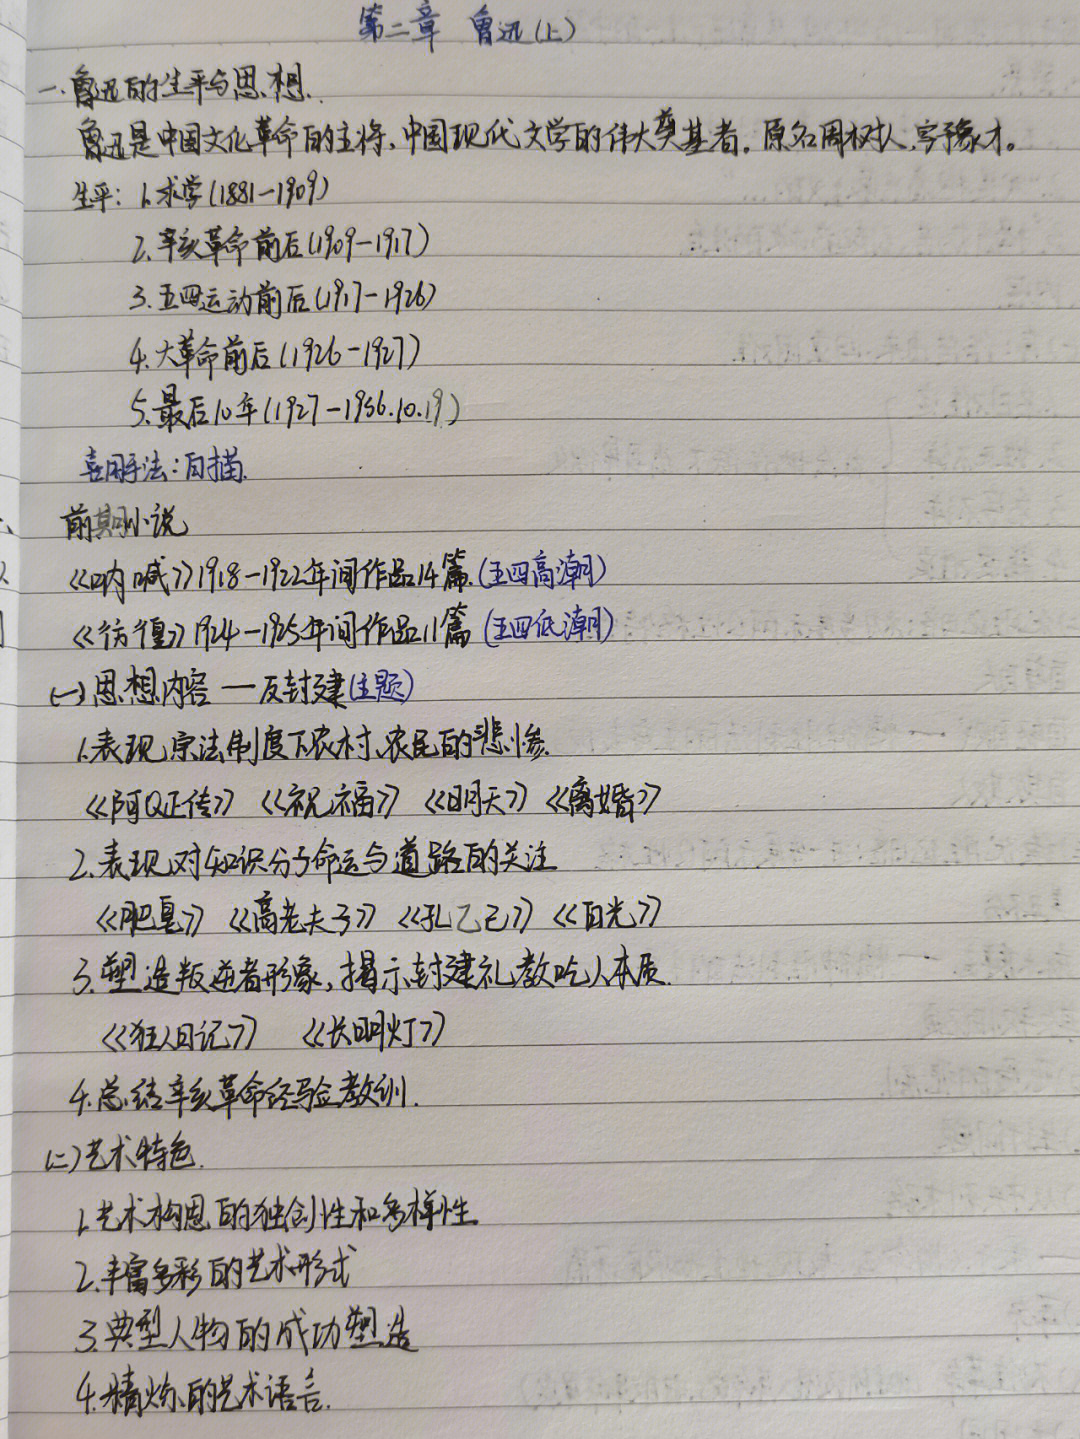 第二章 鲁迅(上)
一.鲁迅的生平与思想.
鲁迅是中国文化革命的主将,中国现代文学的伟大奠基者。原名周树人,字豫才。
生平:1.求学(1881-1909)
2.辛亥革命前后(1909-1917)
3.五四运动前后(1917-1926)
4.大革命前后(1926-1927)
5.最后10年(1927-1936.10.19)
喜用手法:白描.
前期小说
《呐喊》1918-1922年间作品14篇.(五四高潮)
《彷徨》1924-1925年间作品11篇(五四低潮)
(一)思想内容—反封建(主题)
1.表现宗法制度下农村、农民的悲惨.
《阿Q正传》《祝福》《明天》《离婚》
2.表现对知识分子命运与道路的关注
《肥皂》《高老夫子》《孔乙己》《白光》
3.塑造叛逆者形象,揭示封建礼教吃人本质.
《狂人日记》 《长明灯》
4.总结辛亥革命经验教训.
(二)艺术特色.
1.艺术构思的独创性和多样性.
2.丰富多彩的艺术形式
3.典型人物的成功塑造
4.精炼的艺术语言.